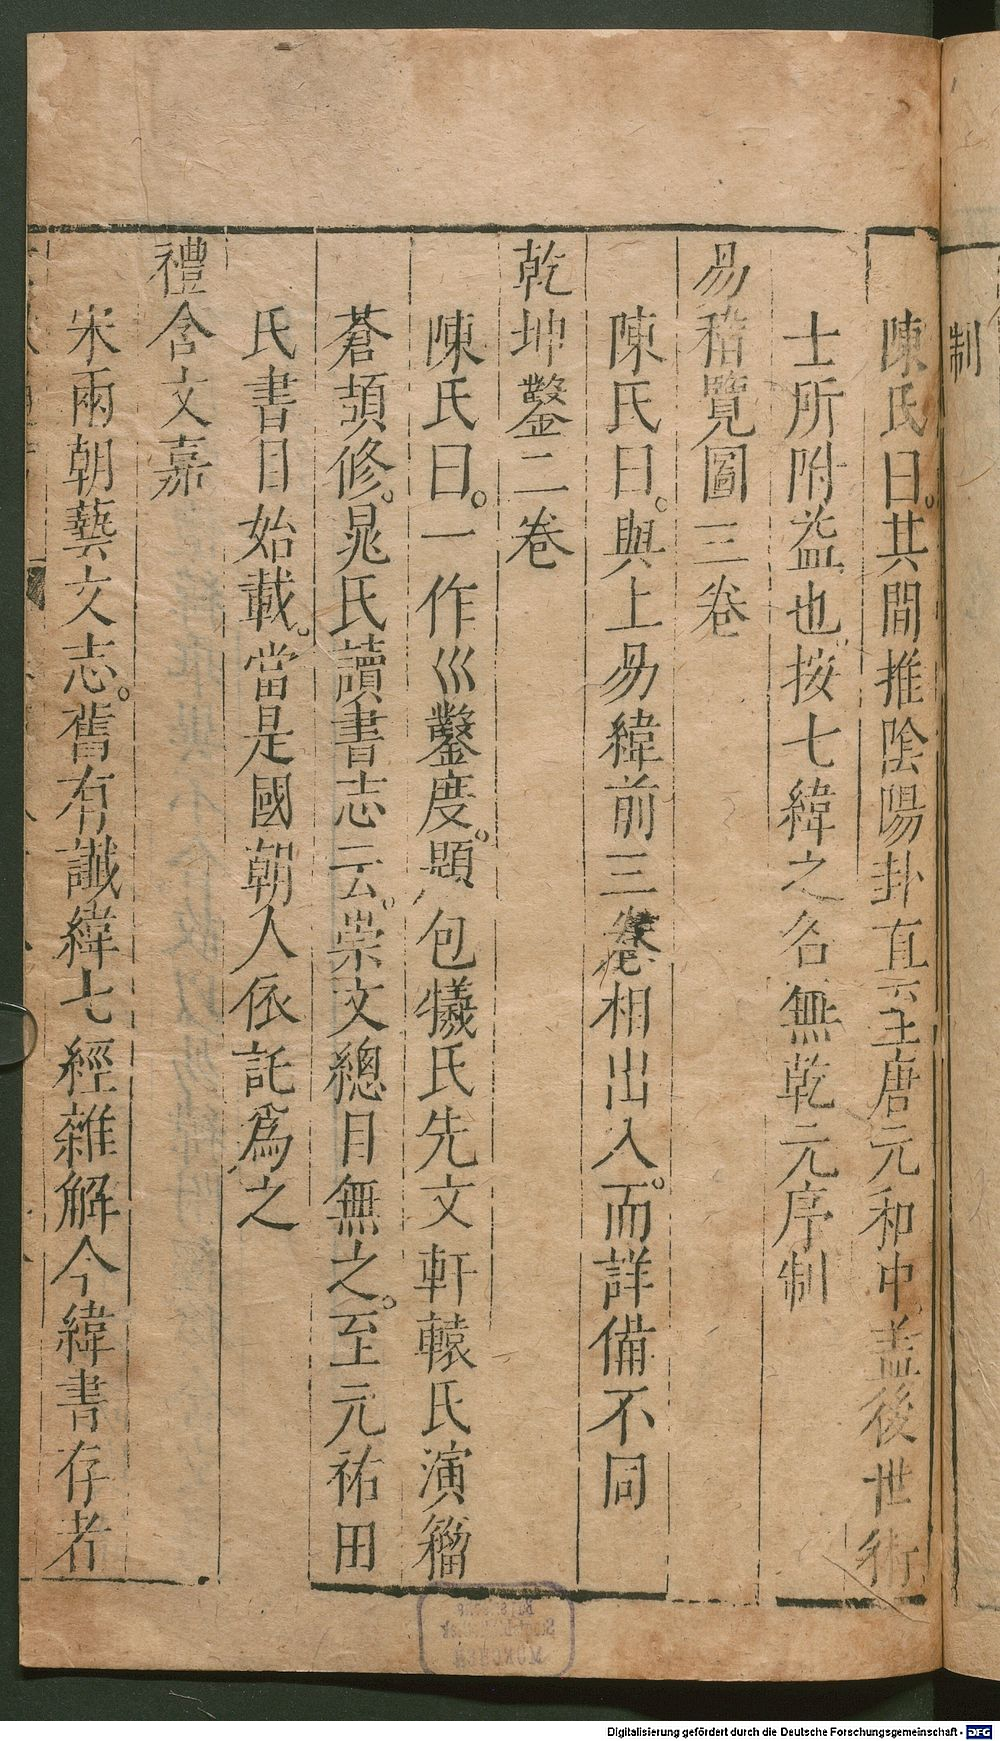 制
陳氏曰。其間推陰陽卦直至唐元和中、蓋後世術
士所附益也、按七緯之名無乾元序制
易稽覽圖三卷
陳氏曰。與上易緯前三卷相出入。而詳備不同
乾坤鑿二卷
陳氏曰。一作巛鑿度。題包犧氏先文軒轅氏演籀
蒼頡修。晁氏讀書志云。崇文總目無之。至元祐田
氏書目始載。當是國朝人依託爲之
禮含文嘉
宋兩朝藝文志。舊有讖緯七經雜解今緯書存者
Digitalisierung gefördert durch die Deutsche Forschungsgemeinschaft - DFG